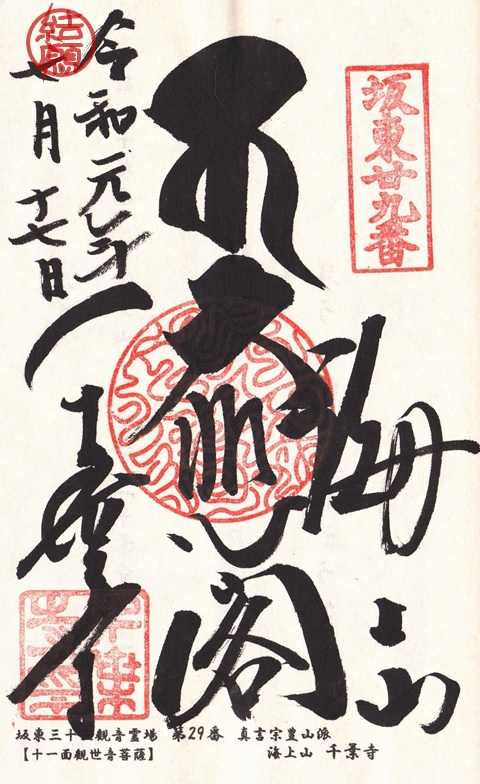 坂東廿九番
海上山
大悲閣
千葉寺
令和元年
七月十七日
結願
坂東三十三観音霊場 第29番 真言宗豊山派
【十一面観世音菩薩】 海上山 千葉寺